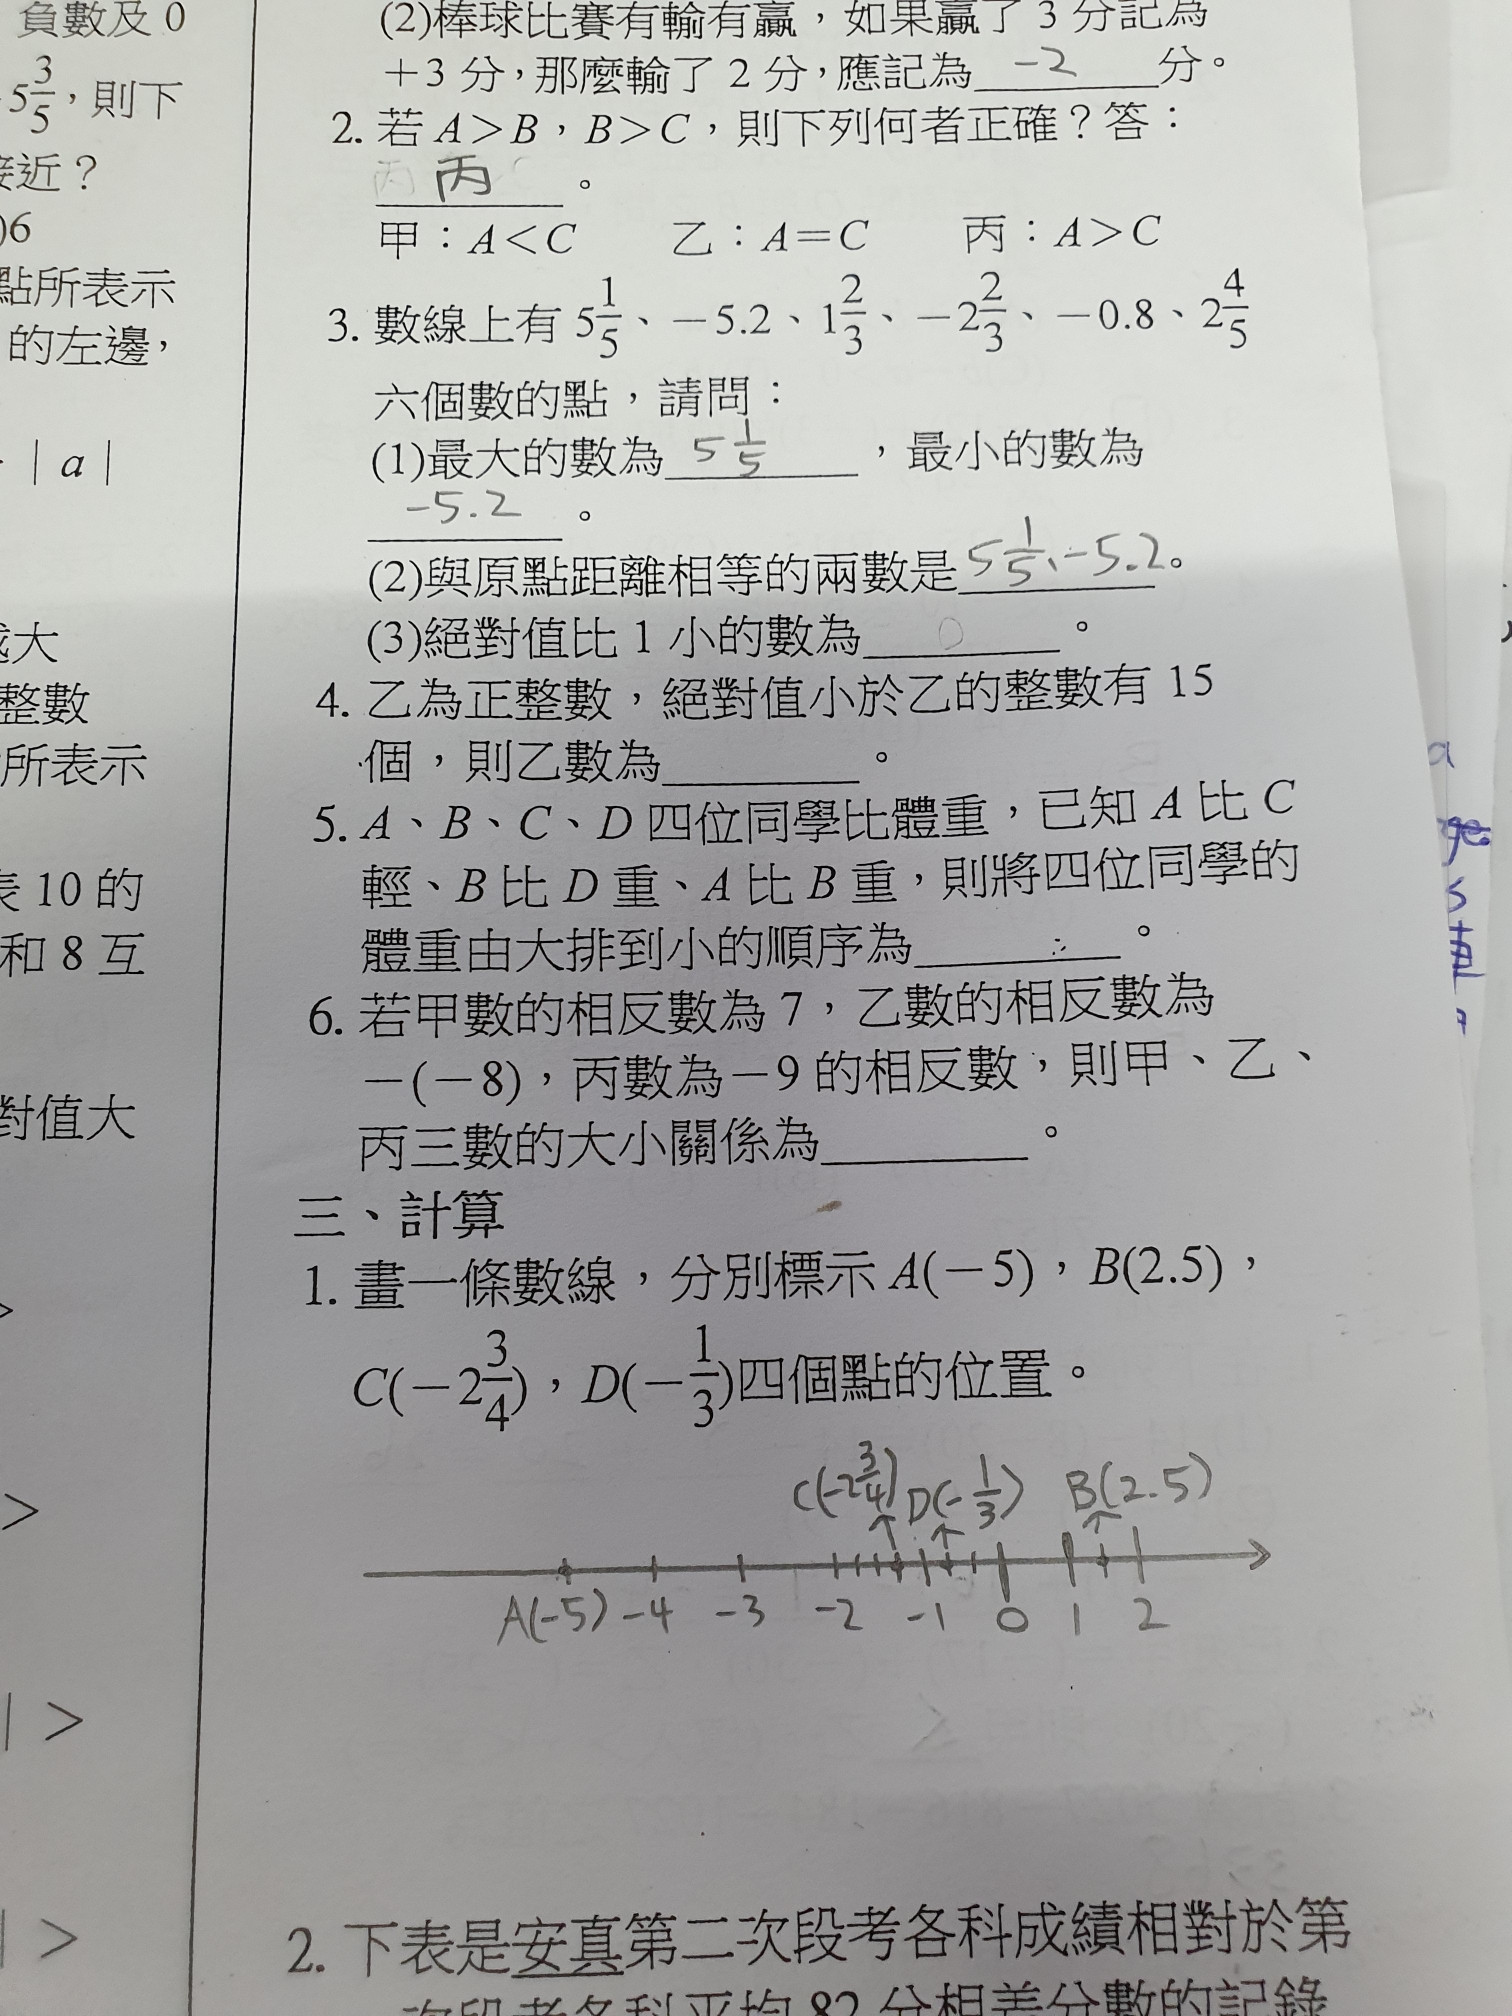 負數及 0
5 3/5，則下
接近？
)6
點所表示
的左邊，
| a |
越大
整數
所表示
表 10 的
和 8 互
對值大
>
>
| >
| >
(2)棒球比賽有輸有贏，如果贏了 3 分記為
＋3 分，那麼輸了 2 分，應記為 -2 分。
2. 若 A＞B，B＞C，則下列何者正確？答：
丙 。
甲：A＜C 乙：A＝C 丙：A＞C
3. 數線上有 5 1/5、－5.2、1 2/3、－2 2/3、－0.8、2 4/5
六個數的點，請問：
(1)最大的數為 5 1/5 ，最小的數為
-5.2 。
(2)與原點距離相等的兩數是 5 1/5、-5.2。
(3)絕對值比 1 小的數為 0 。
4. 乙為正整數，絕對值小於乙的整數有 15
個，則乙數為________。
5. A、B、C、D 四位同學比體重，已知 A 比 C
輕、B 比 D 重、A 比 B 重，則將四位同學的
體重由大排到小的順序為________。
6. 若甲數的相反數為 7，乙數的相反數為
－(－8)，丙數為－9 的相反數，則甲、乙、
丙三數的大小關係為________。
三、計算
1. 畫一條數線，分別標示 A(－5)，B(2.5)，
C(－2 3/4)，D(－1/3)四個點的位置。
C(-2 3/4) D(-1/3) B(2.5)
A(-5) -4 -3 -2 -1 0 1 2
2. 下表是安真第二次段考各科成績相對於第
次段考各科平均 82 分相差分數的記錄